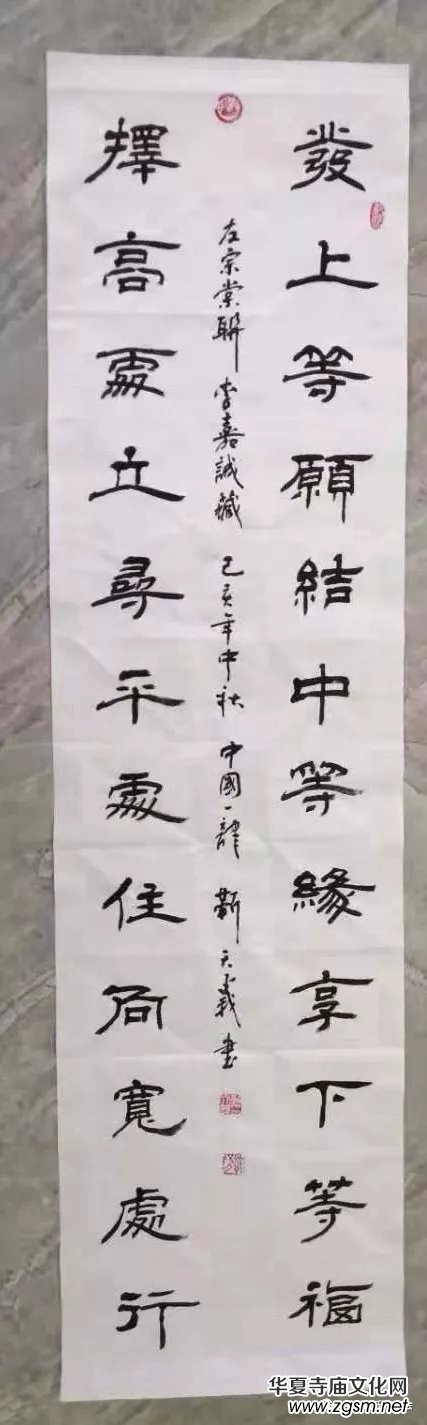 發上等願結中等緣享下等福
左宗棠聯 李嘉誠藏 己亥年中秋 中國一 靳天義書
擇高處立尋平處住向寬處行
华夏寺庙文化网
www.zgsm.net